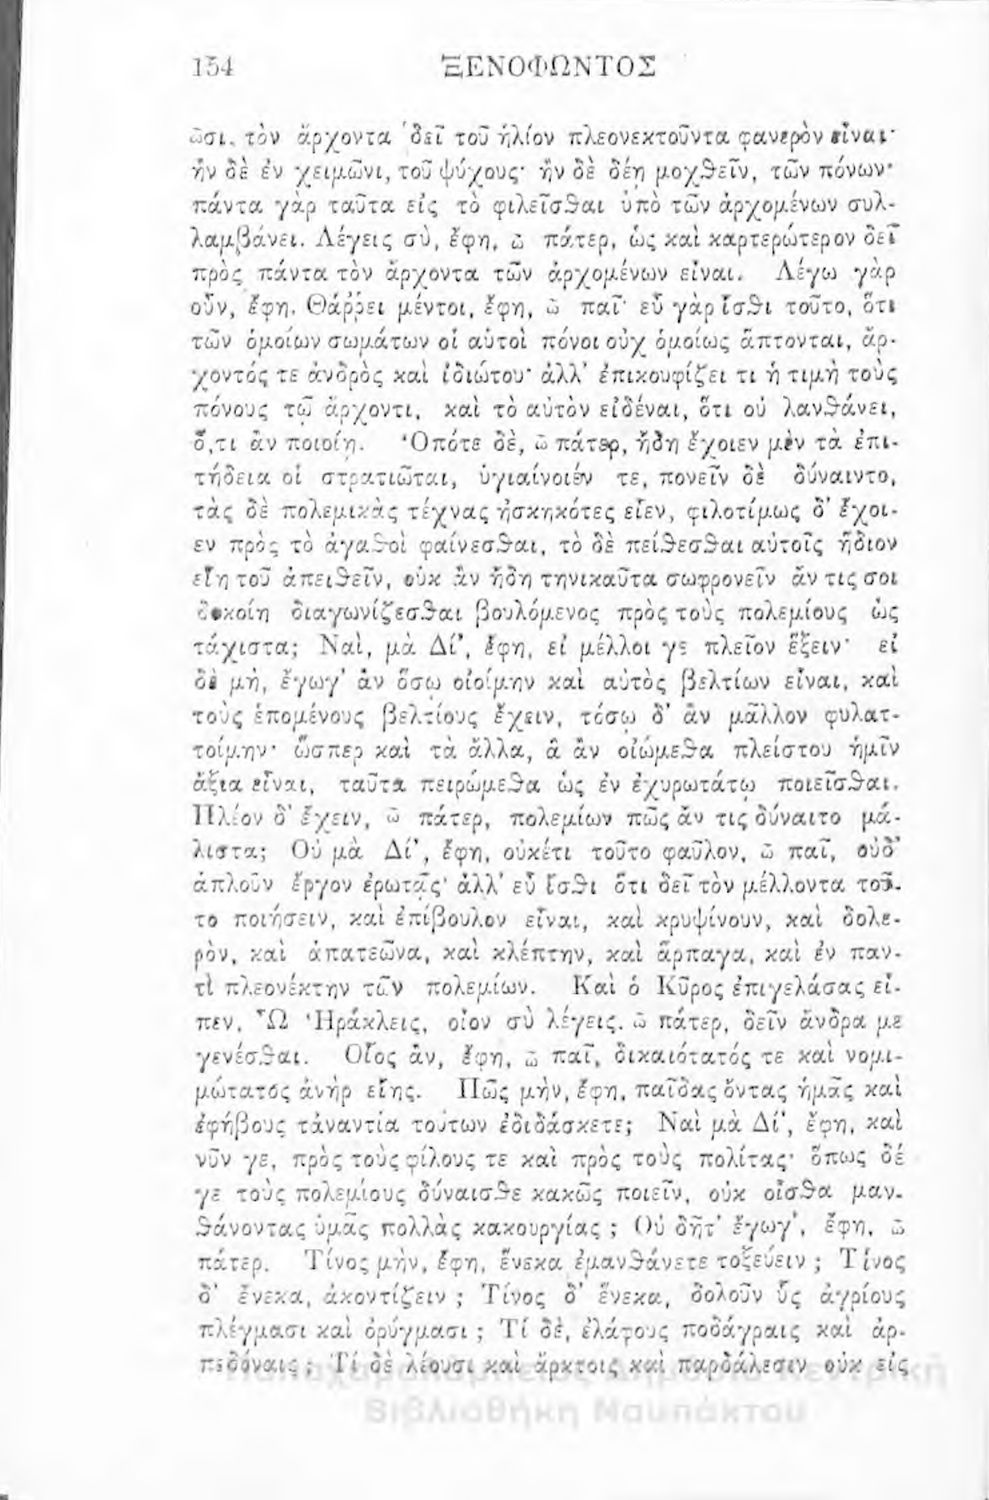 154 ΞΕΝΟΦΩΝΤΟΣ
ὦσι, τὸν ἄρχοντα δεῖ τοῦ ἡλίου πλεονεκτοῦντα φανερὸν εἶναι·
ἢν δὲ ἐν χειμῶνι, τοῦ ψύχους· ἢν δὲ δέῃ μοχθεῖν, τῶν πόνων·
πάντα γὰρ ταῦτα εἰς τὸ φιλεῖσθαι ὑπὸ τῶν ἀρχομένων συλ-
λαμβάνει. Λέγεις σὺ, ἔφη, ὦ πάτερ, ὡς καὶ καρτερώτερον δεῖ
πρὸς πάντα τὸν ἄρχοντα τῶν ἀρχομένων εἶναι. Λέγω γὰρ
οὖν, ἔφη. Θάῤῥει μέντοι, ἔφη, ὦ παῖ· εὖ γὰρ ἴσθι τοῦτο, ὅτι
τῶν ὁμοίων σωμάτων οἱ αὐτοὶ πόνοι οὐχ ὁμοίως ἅπτονται, ἄρ-
χοντός τε ἀνδρὸς καὶ ἰδιώτου· ἀλλ' ἐπικουφίζει τι ἡ τιμὴ τοὺς
πόνους τῷ ἄρχοντι, καὶ τὸ αὐτὸν εἰδέναι, ὅτι οὐ λανθάνει,
ὅ,τι ἂν ποιοίη. Ὁπότε δὲ, ὦ πάτερ, ἤδη ἔχοιεν μὲν τὰ ἐπι-
τήδεια οἱ στρατιῶται, ὑγιαίνοιέν τε, πονεῖν δὲ δύναιντο,
τὰς δὲ πολεμικὰς τέχνας ἠσκηκότες εἶεν, φιλοτίμως δ' ἔχοι-
εν πρὸς τὸ ἀγαθοὶ φαίνεσθαι, τὸ δὲ πείθεσθαι αὐτοῖς ἥδιον
εἴη τοῦ ἀπειθεῖν, οὐκ ἂν ἤδη τηνικαῦτα σωφρονεῖν ἄν τις σοι
δοκοίη διαγωνίζεσθαι βουλόμενος πρὸς τοὺς πολεμίους ὡς
τάχιστα; Ναὶ, μὰ Δί', ἔφη, εἰ μέλλοι γε πλεῖον ἕξειν· εἰ
δὲ μὴ, ἔγωγ' ἂν ὅσῳ οἰοίμην καὶ αὐτὸς βελτίων εἶναι, καὶ
τοὺς ἑπομένους βελτίους ἔχειν, τόσῳ δ' ἂν μᾶλλον φυλατ-
τοίμην· ὥσπερ καὶ τὰ ἄλλα, ἃ ἂν οἰώμεθα πλείστου ἡμῖν
ἄξια εἶναι, ταῦτα πειρώμεθα ὡς ἐν ἐχυρωτάτῳ ποιεῖσθαι.
Πλέον δ' ἔχειν, ὦ πάτερ, πολεμίων πῶς ἄν τις δύναιτο μά-
λιστα; Οὐ μὰ Δί', ἔφη, οὐκέτι τοῦτο φαῦλον, ὦ παῖ, οὐδ'
ἁπλοῦν ἔργον ἐρωτᾷς· ἀλλ' εὖ ἴσθι ὅτι δεῖ τὸν μέλλοντα τοῦ-
το ποιήσειν, καὶ ἐπίβουλον εἶναι, καὶ κρυψίνουν, καὶ δολε-
ρὸν, καὶ ἀπατεῶνα, καὶ κλέπτην, καὶ ἅρπαγα, καὶ ἐν παν-
τὶ πλεονέκτην τῶν πολεμίων. Καὶ ὁ Κῦρος ἐπιγελάσας εἶ-
πεν, Ὦ Ἡράκλεις, οἷον σὺ λέγεις, ὦ πάτερ, δεῖν ἄνδρα με
γενέσθαι. Οἷος ἂν, ἔφη, ὦ παῖ, δικαιότατός τε καὶ νομι-
μώτατος ἀνὴρ εἴης. Πῶς μὴν, ἔφη, παῖδας ὄντας ἡμᾶς καὶ
ἐφήβους τἀναντία τούτων ἐδιδάσκετε; Ναὶ μὰ Δί', ἔφη, καὶ
νῦν γε, πρὸς τοὺς φίλους τε καὶ πρὸς τοὺς πολίτας· ὅπως δέ
γε τοὺς πολεμίους δύναισθε κακῶς ποιεῖν, οὐκ οἶσθα μαν-
θάνοντας ὑμᾶς πολλὰς κακουργίας ; Οὐ δῆτ' ἔγωγ', ἔφη, ὦ
πάτερ. Τίνος μὴν, ἔφη, ἕνεκα ἐμανθάνετε τοξεύειν ; Τίνος
δ' ἕνεκα, ἀκοντίζειν ; Τίνος δ' ἕνεκα, δολοῦν ὗς ἀγρίους
πλέγμασι καὶ ὀρύγμασι ; Τί δὲ, ἐλάφους ποδάγραις καὶ ἁρ-
πεδόναις ; Τί δὲ λέουσι καὶ ἄρκτοις καὶ παρδάλεσιν οὐκ εἰς
Παπαχαραλάμπειος Δημόσια Κεντρική
Βιβλιοθήκη Ναυπάκτου